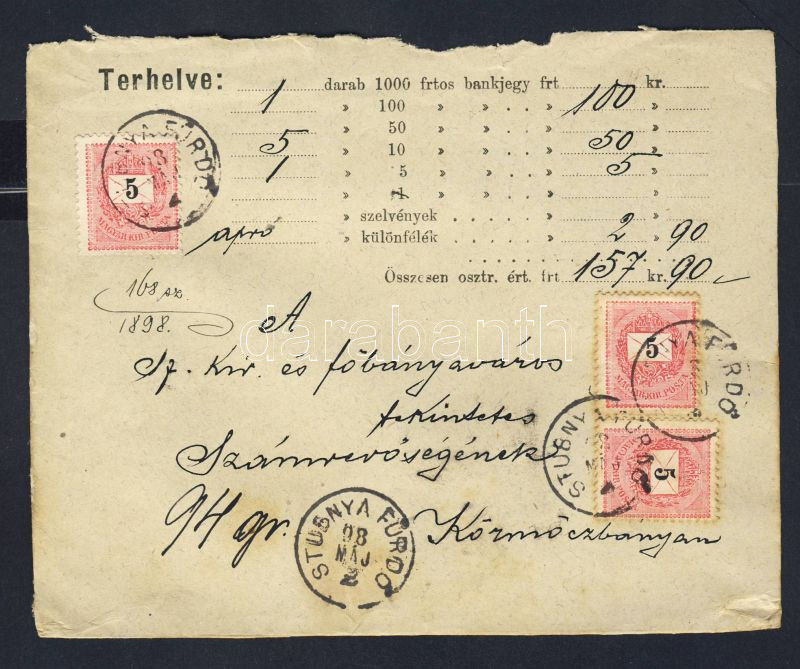 Terhelve: 1 darab 1000 frtos bankjegy frt 100 kr.
» 100 » » »
5 » 50 » » » 50
1 » 10 » » » 5
» 5 » » »
» 1 » » »
» szelvények
apró » különfélék 2 90
Összesen osztr. ért. frt 157 kr. 90
168 sz.
1898.
A
Sz. Kir. és főbányaváros
tekintetes
Számvevőségének
94 gr. Körmöczbányán
5
MAGYAR KIR. POSTA
5
MAGYAR KIR. POSTA
5
STUBNYA FÜRDŐ
98
MÁJ
2
STUBNYA FÜRDŐ
NYA FÜRDŐ
NYA FÜRDŐ
98
darabanth